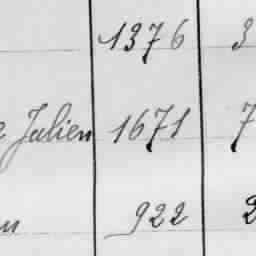 1376 3
Julien 1671 7
922 2